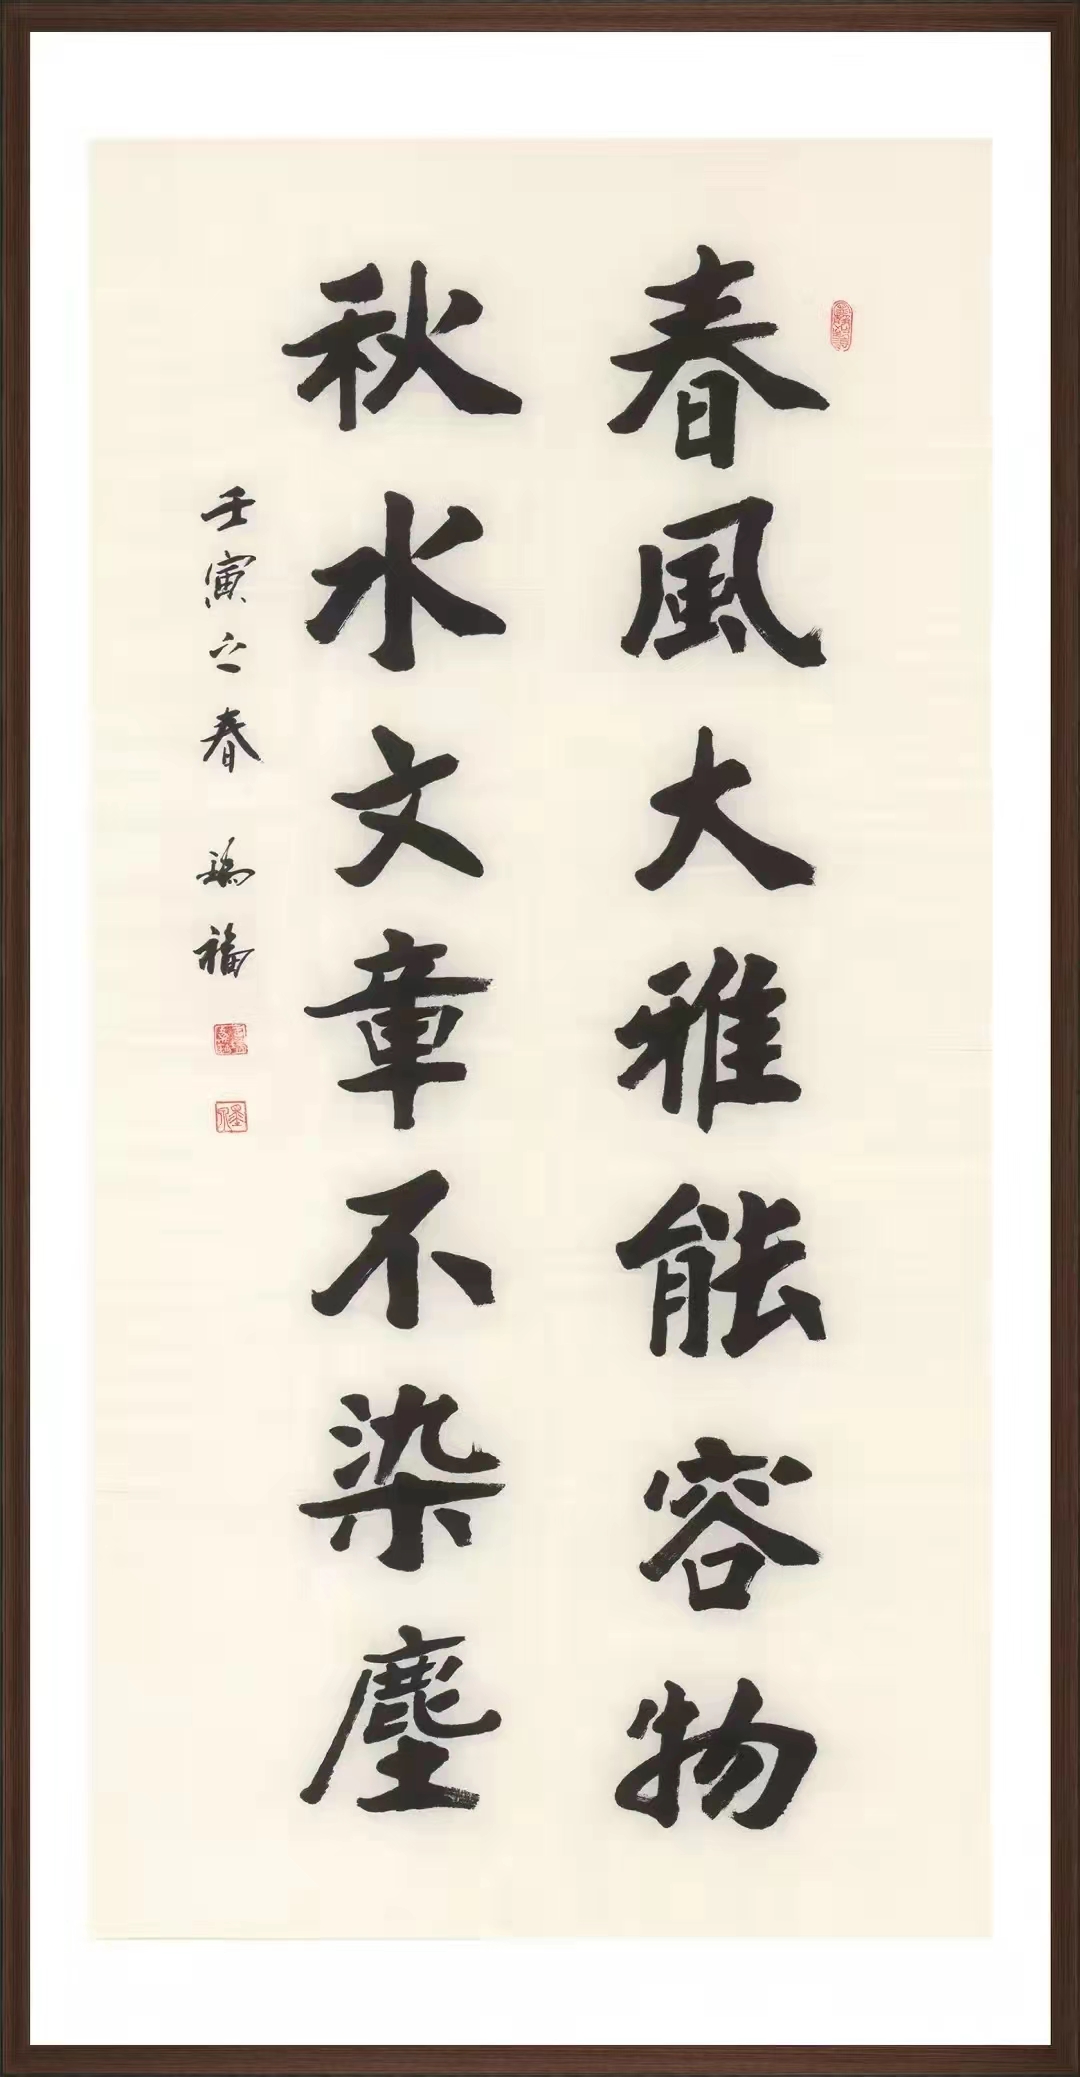 春風大雅能容物
秋水文章不染塵
壬寅之春 瑞福